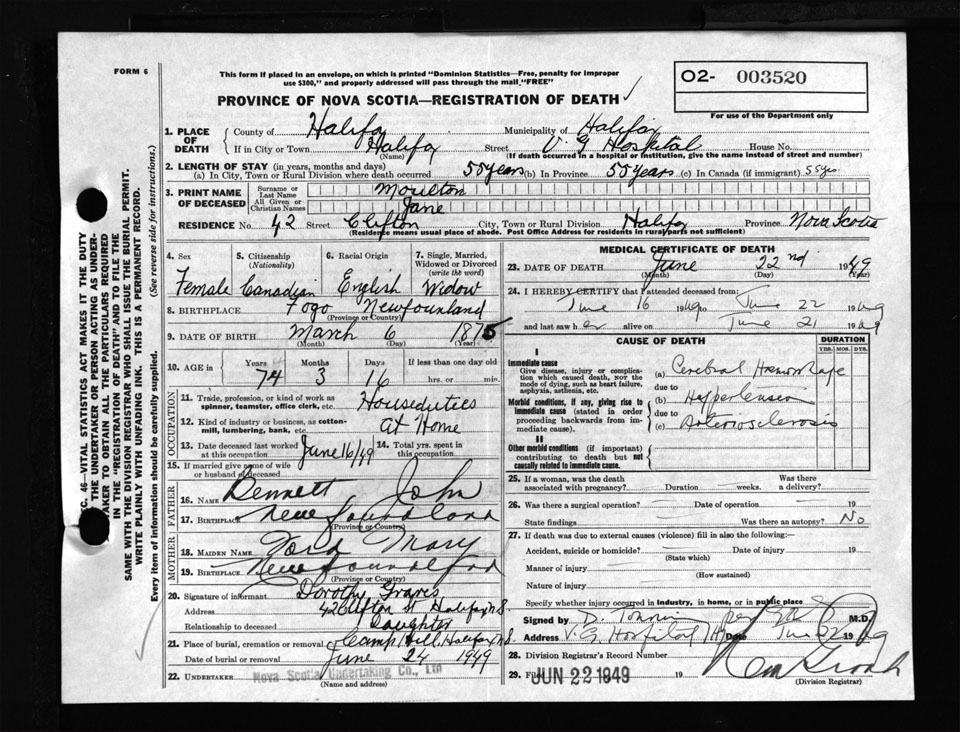 FORM 6
This form if placed in an envelope, on which is printed "Dominion Statistics—Free, penalty for improper
use $300," and properly addressed will pass through the mail "FREE"
O2- 003520
PROVINCE OF NOVA SCOTIA—REGISTRATION OF DEATH ✓
For use of the Department only
1. PLACE OF DEATH { County of Halifax Municipality of Halifax
If in City or Town Halifax Street V. G Hospital House No.
(Name) (If death occurred in a hospital or institution, give the name instead of street and number)
2. LENGTH OF STAY (in years, months and days)
(a) In City, Town or Rural Division where death occurred 55 years (b) In Province 55 years (c) In Canada (if immigrant) 55 yrs
3. PRINT NAME OF DECEASED { Surname or Last Name Moulton
All Given or Christian Names Jane
RESIDENCE No. 42 Street Clifton City, Town or Rural Division Halifax Province Nova Scotia
(Residence means usual place of abode. Post Office Address for residents in rural parts not sufficient)
4. Sex 5. Citizenship (Nationality) 6. Racial Origin 7. Single, Married, Widowed or Divorced (write the word)
Female Canadian English Widow
8. BIRTHPLACE Fogo Newfounland
(Province or Country)
9. DATE OF BIRTH March 6 1875
(Month) (Day) (Year)
10. AGE in { Years Months Days If less than one day old
74 3 16 hrs. or min.
OCCUPATION
11. Trade, profession or kind of work as spinner, teamster, office clerk, etc. Houseduties
12. Kind of industry or business, as cotton-mill, lumbering, bank, etc. At Home
13. Date deceased last worked at this occupation June 16/49 14. Total yrs. spent in this occupation
15. If married give name of wife or husband of deceased
FATHER
16. Name Bennett John
17. Birthplace Newfoundland
(Province or Country)
MOTHER
18. MAIDEN NAME Ford Mary
19. BIRTHPLACE Newfoundland
(Province or Country)
20. Signature of informant Dorothy Graves
Address 42 Clifton St Halifax N S
Relationship to deceased Daughter
21. Place of burial, cremation or removal Camp Hill, Halifax N S.
Date of burial or removal June 24 1949
22. UNDERTAKER Nova Scotia Undertaking Co., Ltd
(Name and address)
MEDICAL CERTIFICATE OF DEATH
23. DATE OF DEATH June 22nd 1949
(Month) (Day) (Year)
24. I HEREBY CERTIFY that I attended deceased from:
June 16 1949 to June 22 1949
and last saw her alive on June 21 1949
CAUSE OF DEATH DURATION
YRS. MOS. DYS.
I
Immediate cause
Give disease, injury or complication which caused death, not the mode of dying, such as heart failure, asphyxia, asthenia, etc.
(a) Cerebral Haemorrhage
due to
Morbid conditions, if any, giving rise to immediate cause (stated in order proceeding backwards from immediate cause).
(b) Hypertension
due to
(c) Arteriosclerosis
II
Other morbid conditions (if important) contributing to death but not causally related to immediate cause.
25. If a woman, was the death associated with pregnancy? Duration weeks. Was there a delivery?
26. Was there a surgical operation? Date of operation 19
State findings Was there an autopsy? No
27. If death was due to external causes (violence) fill in also the following:—
Accident, suicide or homicide? Date of injury 19
(State which)
Manner of injury
(How sustained)
Nature of injury
Specify whether injury occurred in industry, in home, or in public place
Signed by M.D.
Address V. G. Hospital Date June 22 1949
28. Division Registrar's Record Number
29. Filed JUN 22 1949 19
(Division Registrar)
C. 46—VITAL STATISTICS ACT MAKES IT THE DUTY
THE UNDERTAKER OR PERSON ACTING AS UNDER-
TAKER TO OBTAIN ALL THE PARTICULARS REQUIRED
IN THE "REGISTRATION OF DEATH" AND TO FILE THE
SAME WITH THE DIVISION REGISTRAR WHO SHALL ISSUE THE BURIAL PERMIT.
WRITE PLAINLY WITH UNFADING INK. THIS IS A PERMANENT RECORD.
Every item of information should be carefully supplied. (See reverse side for instructions.)